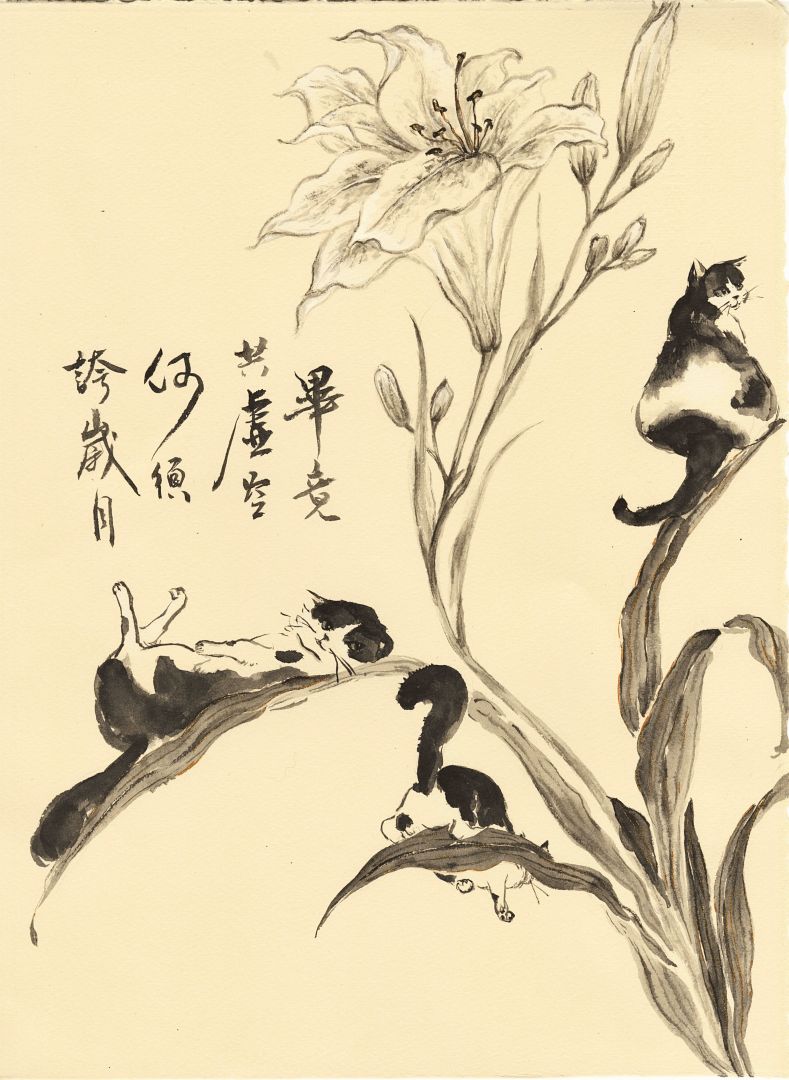 畢竟
共虛空
何須
誇歲月